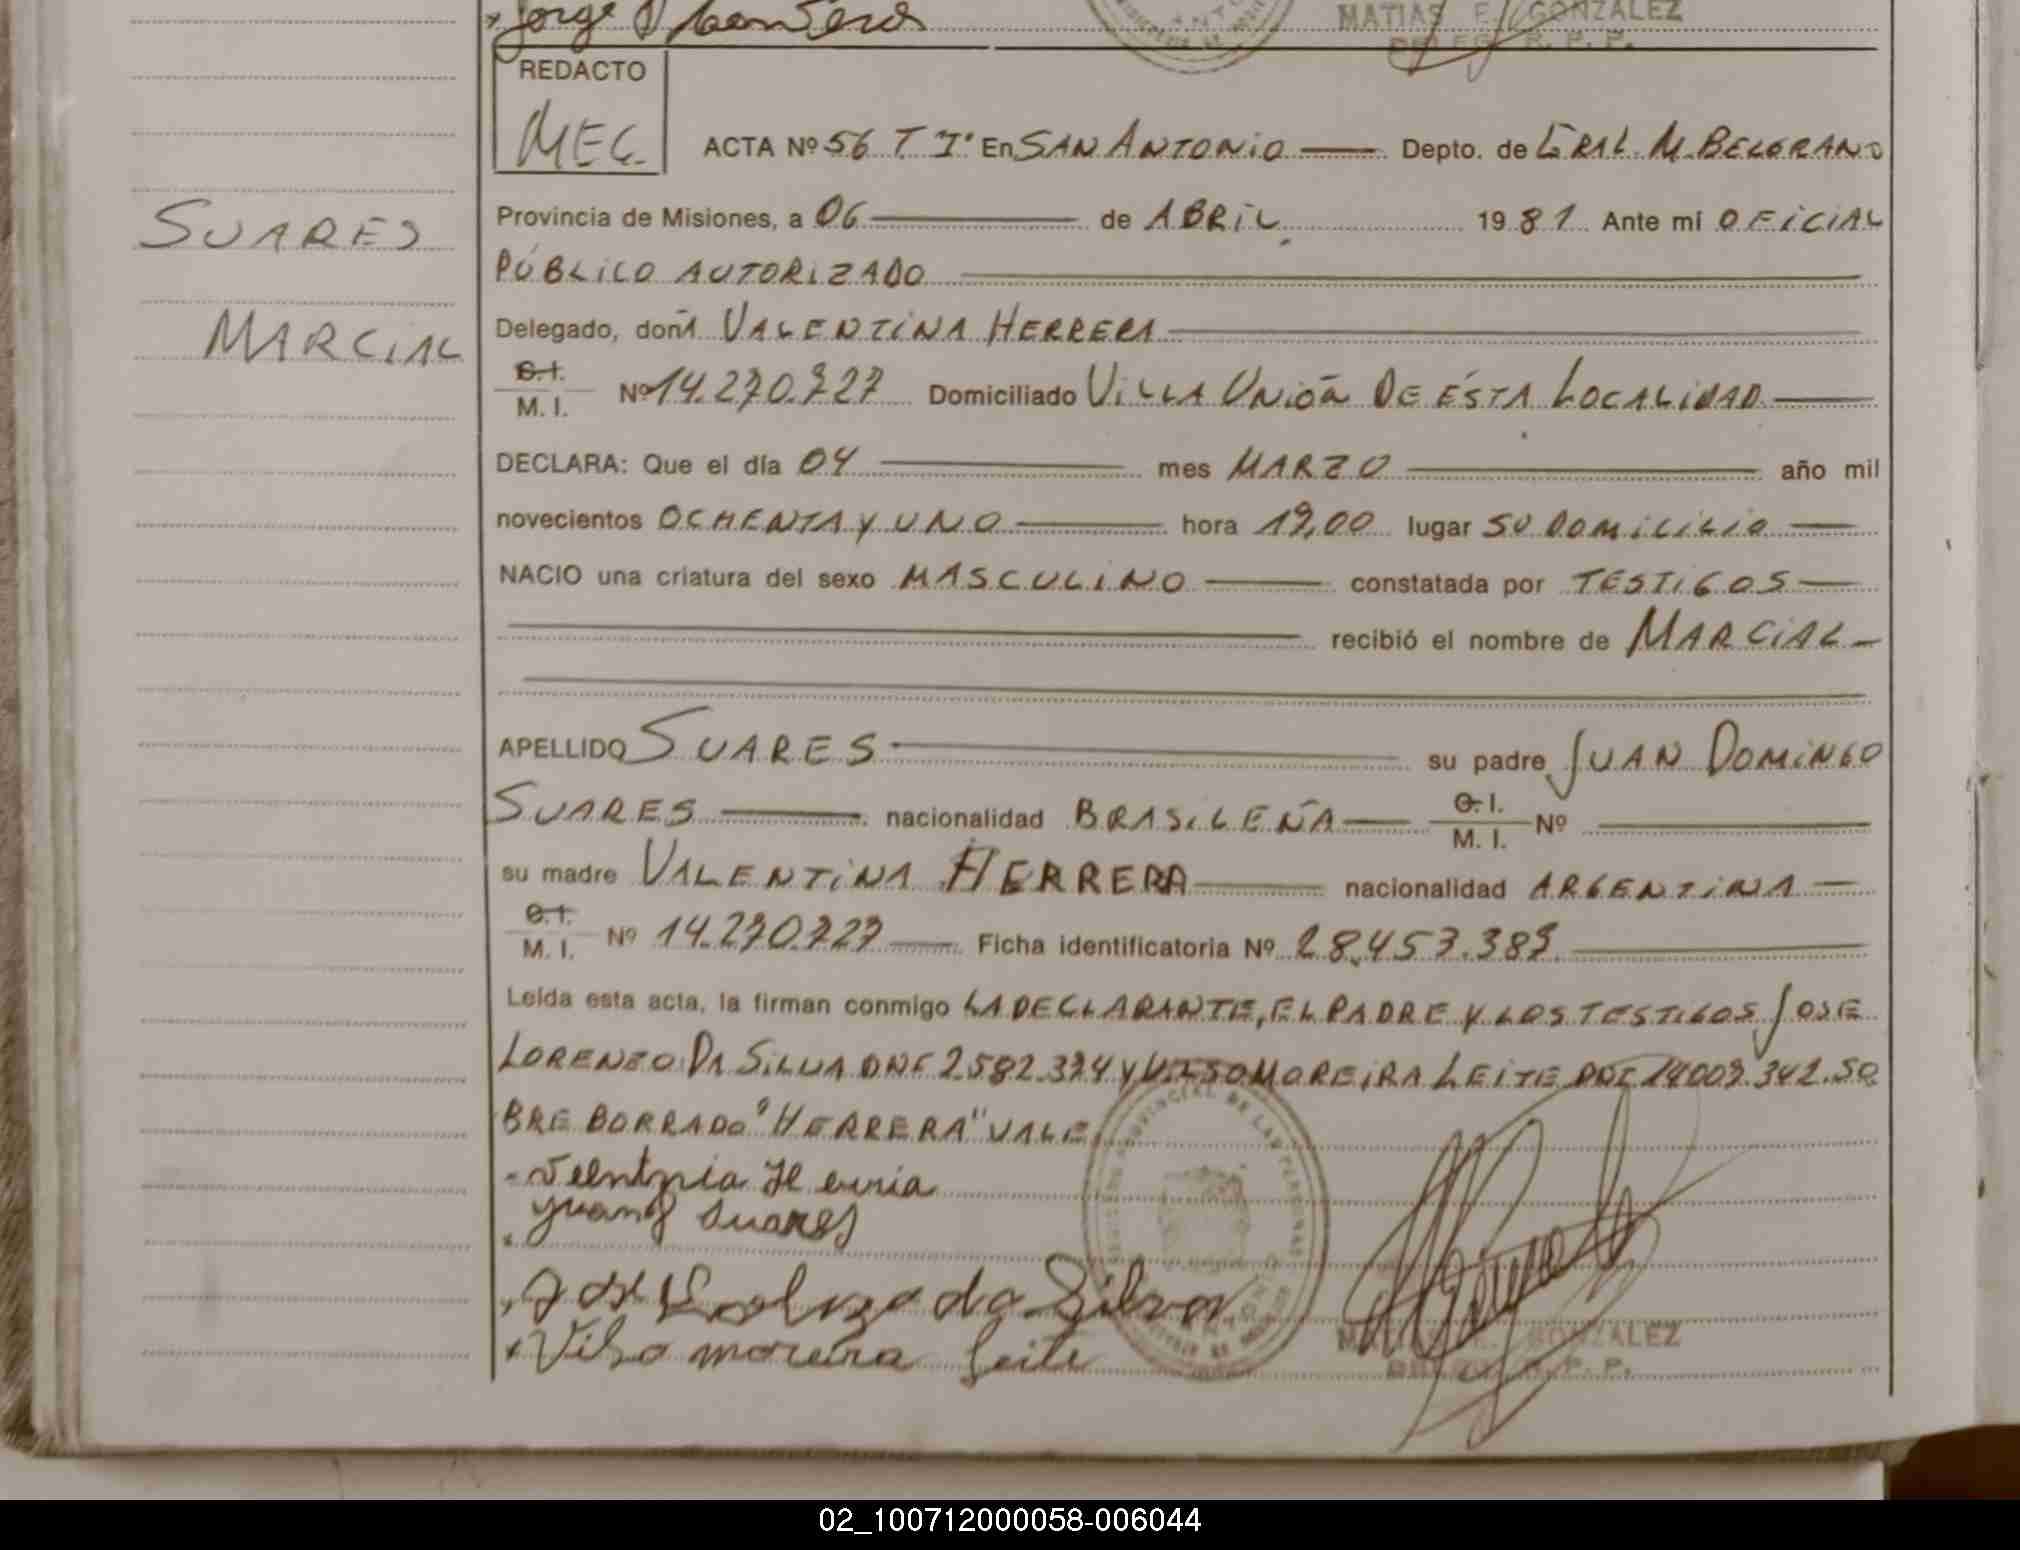 Jorge
MATIAS E. GONZALEZ
DELEG. R. P. P.
REDACTO
MEG.
ACTA Nº 56 T Iº En SAN ANTONIO Depto. de GRAL. M. BELGRANO
SUARES
MARCIAL
Provincia de Misiones, a 06 de ABRIL 1981 Ante mí OFICIAL
PÚBLICO AUTORIZADO
Delegado, doña VALENTINA HERRERA
C.I. / M.I. Nº 14.270.727 Domiciliado VILLA UNIÓN DE ÉSTA LOCALIDAD
DECLARA: Que el día 04 mes MARZO año mil
novecientos OCHENTA Y UNO hora 19,00 lugar SU DOMICILIO
NACIO una criatura del sexo MASCULINO constatada por TESTIGOS
recibió el nombre de MARCIAL
APELLIDO SUARES su padre JUAN DOMINGO
SUARES nacionalidad BRASILEÑA C.I. / M.I. Nº
su madre VALENTINA HERRERA nacionalidad ARGENTINA
C.I. / M.I. Nº 14.270.727 Ficha identificatoria Nº 28.453.389
Leída esta acta, la firman conmigo LA DECLARANTE, EL PADRE Y LOS TESTIGOS JOSE
LORENZO DA SILVA DNI 2.582.374 Y VILSO MOREIRA LEITE DNI 14009.342. SO
BRE BORRADO "HERRERA" VALE
Juan D Suares
José da Silva
Vilso moreira leite
MATIAS E. GONZALEZ
DELEG. R. P. P.
02_100712000058-006044